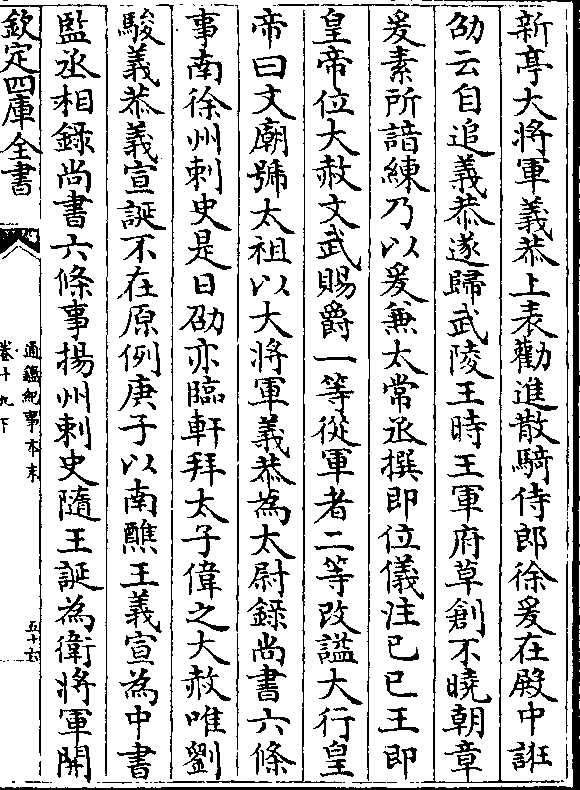 新亭大將軍義恭上表勸進散騎侍郎徐爰在殿中誑
劭云自追義恭遂歸武陵王時王軍府草創不曉朝章
爰素所諳練乃以爰兼太常丞撰即位儀注己巳王即
皇帝位大赦文武賜爵一等從軍者二等改諡大行皇
帝曰文廟號太祖以大將軍義恭為太尉錄尚書六條
事南徐州刺史是日劭亦臨軒拜太子偉之大赦唯劉
駿義恭義宣誕不在原例庚子以南譙王義宣為中書
監丞相錄尚書六條事揚州刺史隨王誕為衛將軍開
欽定四庫全書
通鑑紀事本末
卷十九下
五十六